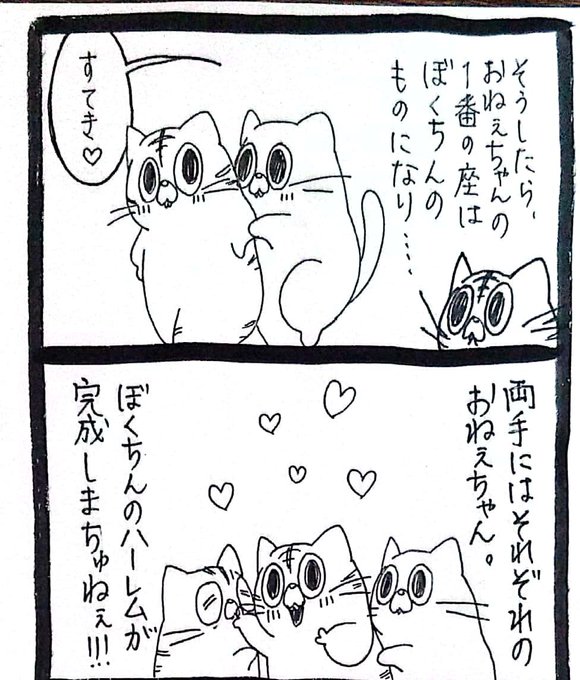 そうしたら、
おねぇちゃんの
1番の座は
ぼくちんの
ものになり……
すてき♡
両手にはそれぞれの
おねぇちゃん。
ぼくちんのハーレムが
完成しまちゅねぇ!!!